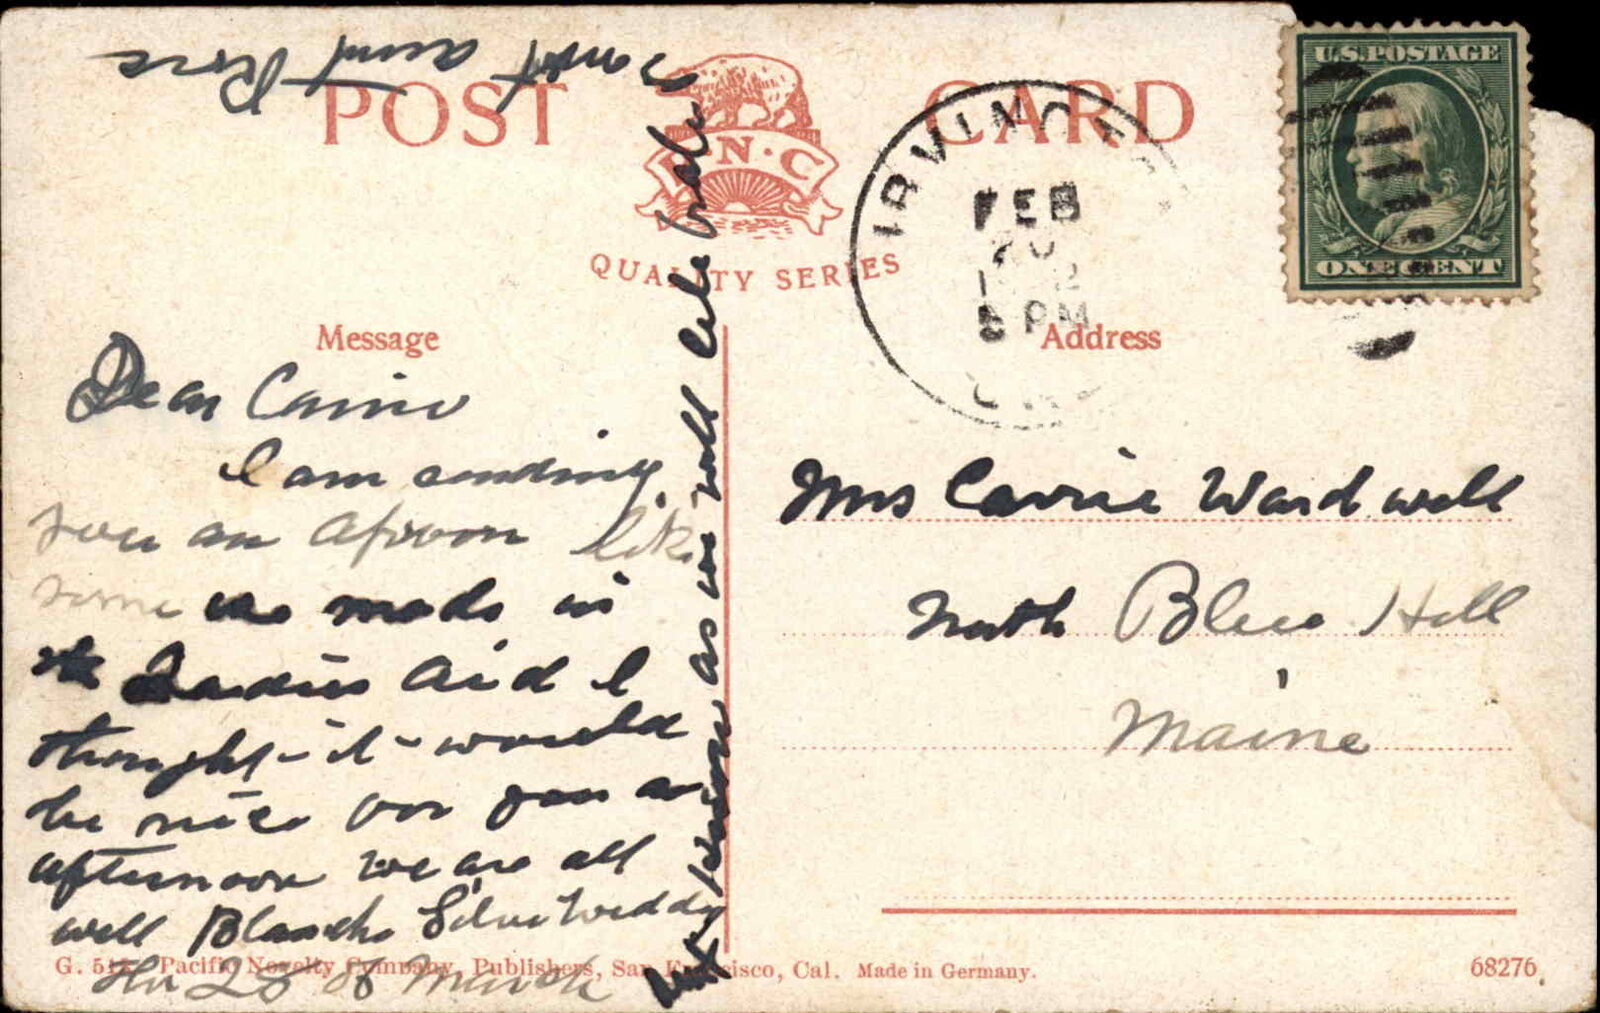 POST CARD
P·N·C
QUALITY SERIES
U.S. POSTAGE
ONE CENT
IRVINGTON
FEB
20
8 PM
CAL
Message
Address
Dear Carrie
I am sending
you an Aproon like
some we made in
the Ladies Aid I
thought it would
be nice for you an
afternoon we are all
well Blanche Silver Wedding
the 28 of March
but know as we will celebrate
from aunt Rose
Mrs Carrie Wardwell
North Blue Hill
Maine
Pacific Novelty Company, Publishers, San Francisco, Cal. Made in Germany.
68276